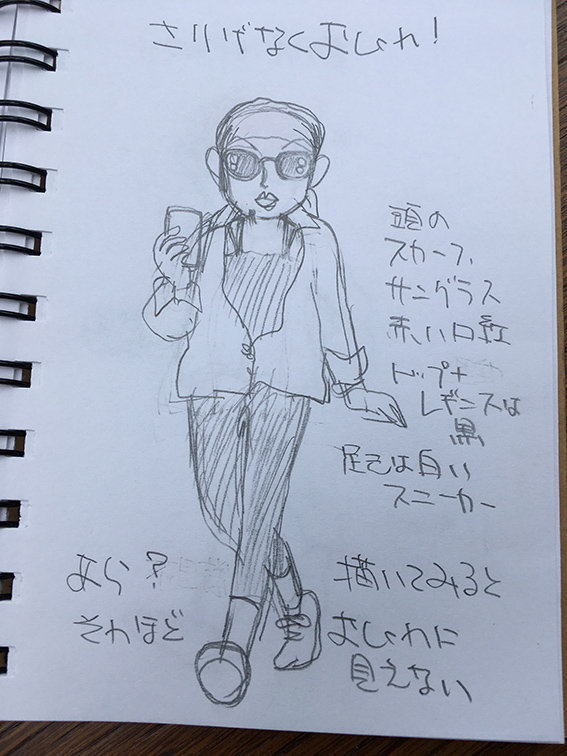 さりげなくおしゃれ！
頭の
スカーフ、
サングラス
赤い口紅
トップ+
レギンスは
黒
足元は白い
スニーカー
あら？
それほど
描いてみると
おしゃれに
見えない